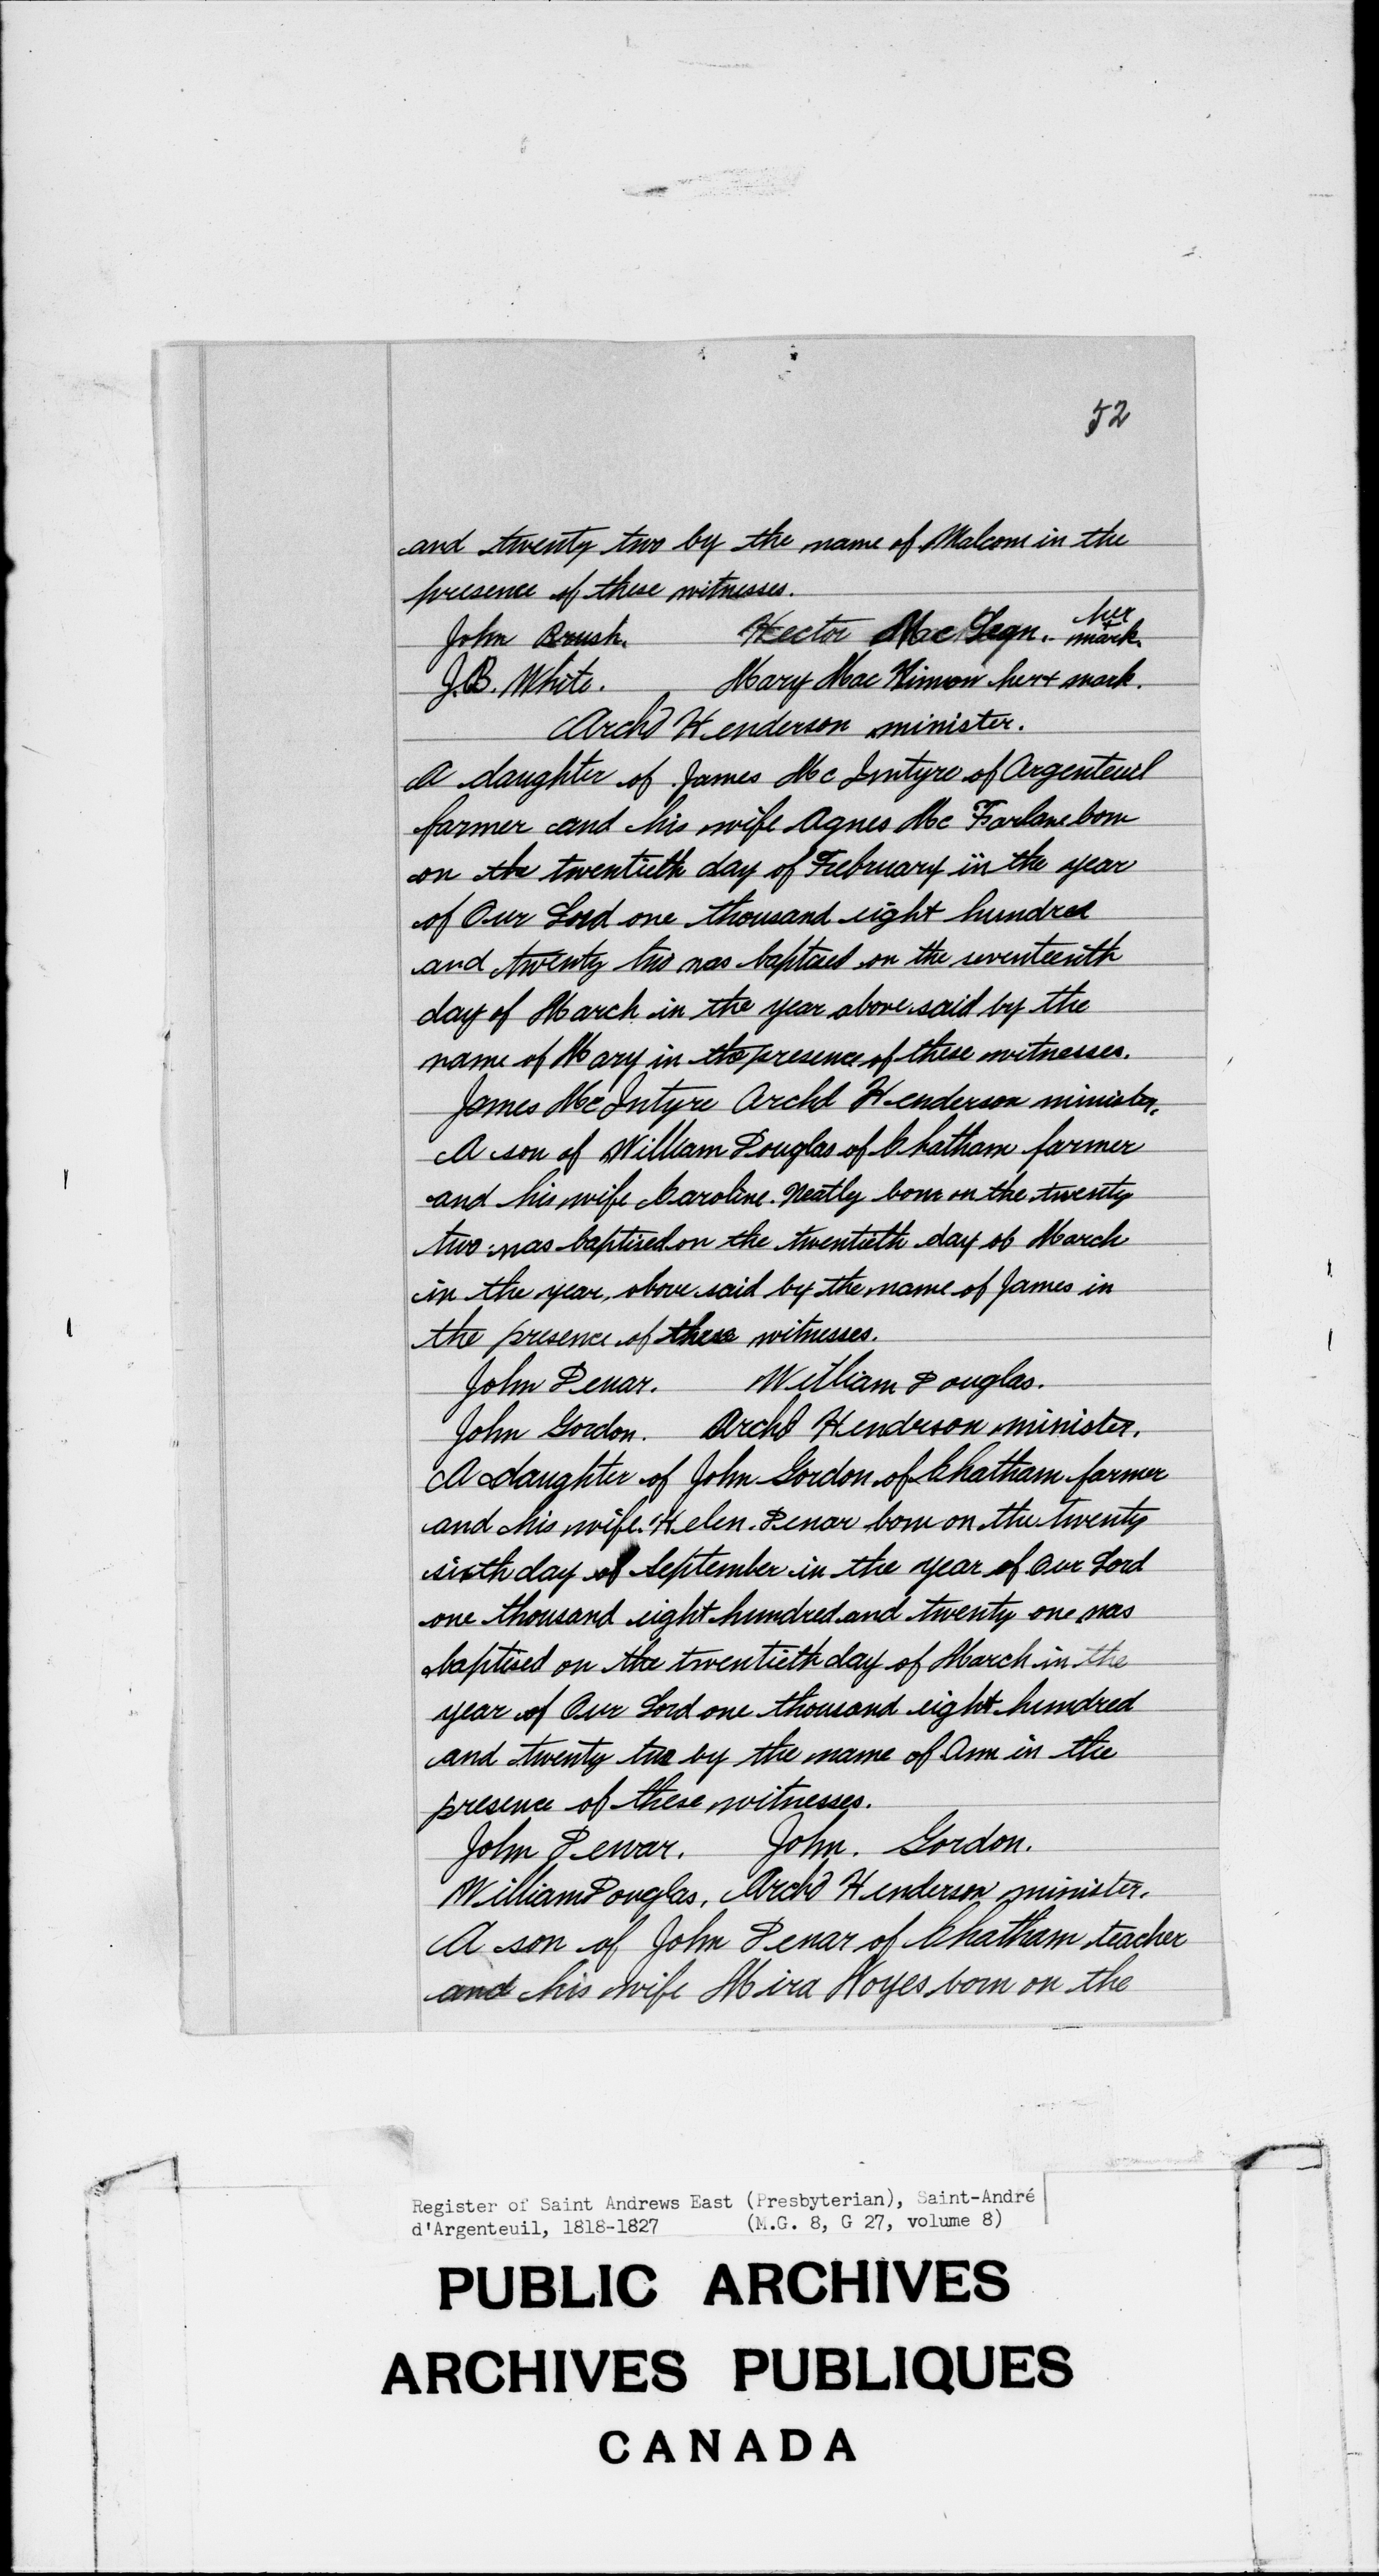 52
and twenty two by the name of Malcom in the
presence of these witnesses.
John Brush. Hector Mac Lean. her + mark.
J.B. White. Mary Mac Kimon her + mark.
Archd Henderson minister.
A daughter of James Mc Intyre of Argenteuil
farmer and his wife Agnes Mc Farlane born
on the twentieth day of February in the year
of Our Lord one thousand eight hundred
and twenty two was baptised on the seventeenth
day of March in the year above said by the
name of Mary in the presence of these witnesses.
James McIntyre Archd Henderson minister.
A son of William Douglas of Chatham farmer
and his wife Caroline Neatly born on the twenty
two was baptised on the twentieth day of March
in the year above said by the name of James in
the presence of these witnesses.
John Dewar. William Douglas.
John Gordon. Archd Henderson minister.
A daughter of John Gordon of Chatham farmer
and his wife Helen Dewar born on the twenty
sixth day of September in the year of Our Lord
one thousand eight hundred and twenty one was
baptised on the twentieth day of March in the
year of Our Lord one thousand eight hundred
and twenty two by the name of Ann in the
presence of these witnesses.
John Dewar. John. Gordon.
William Douglas, Archd Henderson minister.
A son of John Dewar of Chatham teacher
and his wife Mira Noyes born on the
Register of Saint Andrews East (Presbyterian), Saint-André
d'Argenteuil, 1818-1827 (M.G. 8, G 27, volume 8)
PUBLIC ARCHIVES
ARCHIVES PUBLIQUES
CANADA